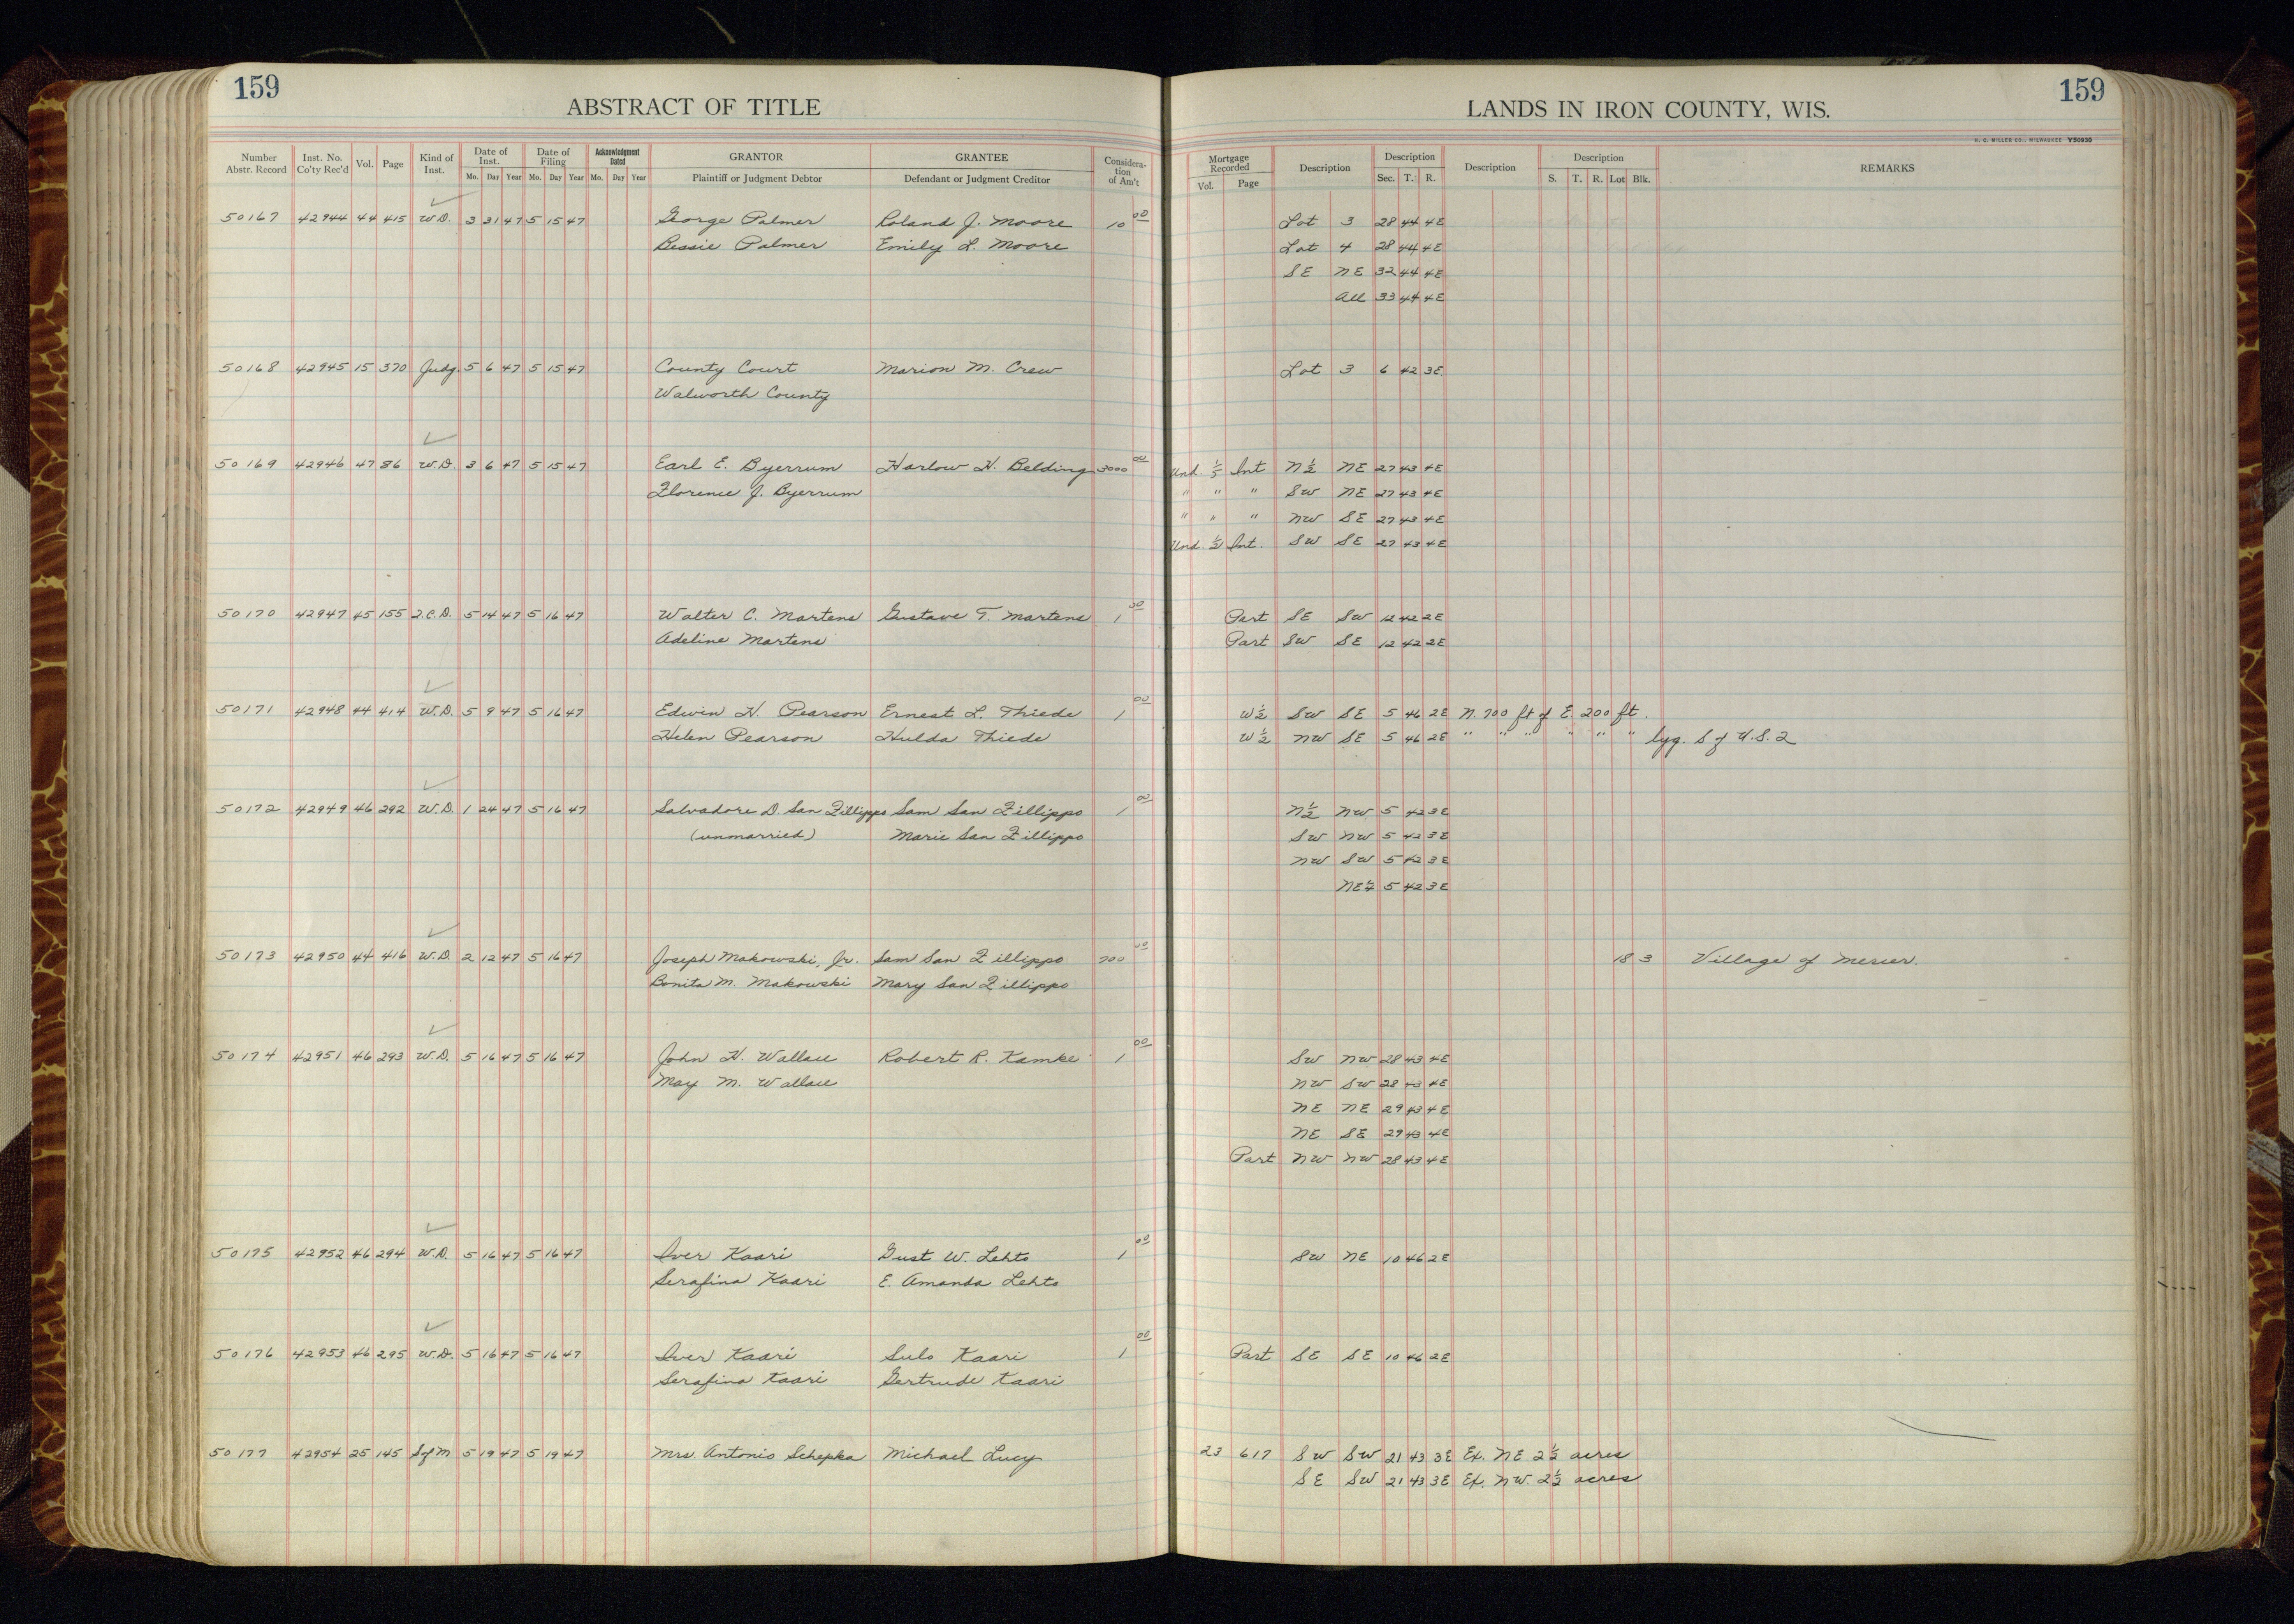 159
ABSTRACT OF TITLE
LANDS IN IRON COUNTY, WIS.
159
H. C. MILLER CO., MILWAUKEE Y50930
Number Abstr. Record Inst. No. Co'ty Rec'd Vol. Page Kind of Inst. Date of Inst. Mo. Day Year Date of Filing Mo. Day Year Acknowledgment Dated Mo. Day Year GRANTOR Plaintiff or Judgment Debtor GRANTEE Defendant or Judgment Creditor Considera-tion of Am't Mortgage Recorded Vol. Page Description Description Sec. T. R. Description Description S. T. R. Lot Blk. REMARKS
50167 42944 44 415 W.D. 3 31 47 5 15 47 George Palmer Roland J. Moore 10 00 Lot 3 28 44 4E
Bessie Palmer Emily L. Moore Lot 4 28 44 4E
SE NE 32 44 4E
All 33 44 4E
50168 42945 15 570 Judg. 5 6 47 5 15 47 County Court Marion M. Crew Lot 3 6 42 3E
Walworth County
50169 42946 47 86 W.D. 3 6 47 5 15 47 Earl E. Byerrum Harlow H. Belding 3000 00 Und. 1/5 Int N 1/2 NE 27 43 4E
Florence J. Byerrum " " " SW NE 27 43 4E
" " " NW SE 27 43 4E
Und. 1/2 Int. SW SE 27 43 4E
50170 42947 45 155 Q.C.D. 5 14 47 5 16 47 Walter C. Martens Gustave T. Martens 1 00 Part SE SW 12 42 2E
Adeline Martens Part SW SE 12 42 2E
50171 42948 44 414 W.D. 5 9 47 5 16 47 Edwin H. Pearson Ernest L. Thiede 1 00 W 1/2 SW SE 5 46 2E N. 700 ft of E. 200 ft.
Helen Pearson Hulda Thiede W 1/2 NW SE 5 46 2E " " " " " " lyg. S of U.S. 2
50172 42949 46 292 W.D. 1 24 47 5 16 47 Salvadore D. San Fillippo Sam San Fillippo 1 00 N 1/2 NW 5 42 3E
(unmarried) Marie San Fillippo SW NW 5 42 3E
NW SW 5 42 3E
NE 1/4 5 42 3E
50173 42950 44 416 W.D. 2 12 47 5 16 47 Joseph Makowski, Jr. Sam San Fillippo 700 00 18 3 Village of Mercer.
Bonita M. Makowski Mary San Fillippo
50174 42951 46 293 W.D. 5 16 47 5 16 47 John H. Wallace Robert R. Kamke 1 00 SW NW 28 43 4E
May M. Wallace NW SW 28 43 4E
NE NE 29 43 4E
NE SE 29 43 4E
Part NW NW 28 43 4E
50175 42952 46 294 W.D. 5 16 47 5 16 47 Iver Kaari Gust W. Lehto 1 00 SW NE 10 46 2E
Serafina Kaari E. Amanda Lehto
50176 42953 46 295 W.D. 5 16 47 5 16 47 Iver Kaari Sulo Kaari 1 00 Part SE SE 10 46 2E
Serafina Kaari Gertrude Kaari
50177 42954 25 145 S of M 5 19 47 5 19 47 Mrs. Antonio Schepka Michael Lucy 23 617 SW SW 21 43 3E Ex. NE 2 1/2 acres
SE SW 21 43 3E Ex. NW. 2 1/2 acres